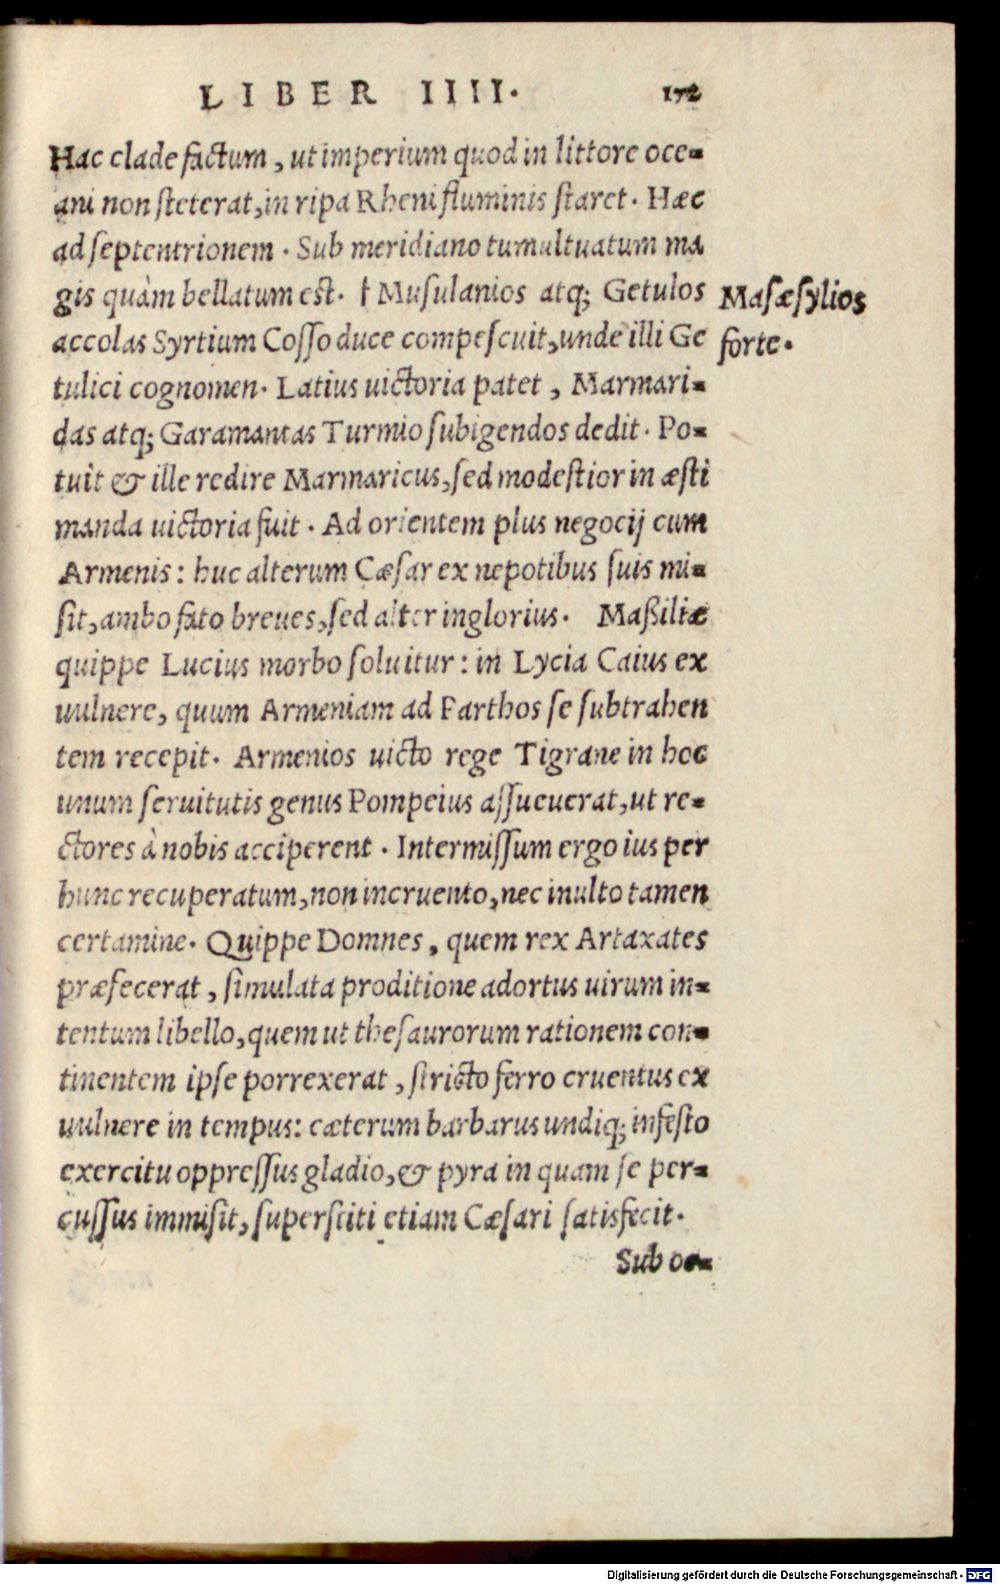 LIBER IIII. 172
Hac clade factum, ut imperium quod in littore oce-
ani non steterat, in ripa Rheni fluminis staret. Hæc
ad septentrionem. Sub meridiano tumultuatum ma
gis quàm bellatum est. † Musulanios atq; Getulos
Masæsylios
accolas Syrtium Cosso duce compescuit, unde illi Ge
forte.
tulici cognomen. Latius uictoria patet, Marmari-
das atq; Garamantas Turmio subigendos dedit. Po-
tuit & ille redire Marmaricus, sed modestior in æsti
manda uictoria fuit. Ad orientem plus negocij cum
Armenis: huc alterum Cæsar ex nepotibus suis mi-
sit, ambo fato breues, sed alter inglorius. Maßiliæ
quippe Lucius morbo soluitur: in Lycia Caius ex
uulnere, quum Armeniam ad Parthos se subtrahen
tem recepit. Armenios uicto rege Tigrane in hoc
unum seruitutis genus Pompeius assueuerat, ut re-
ctores à nobis acciperent. Intermissum ergo ius per
hunc recuperatum, non incruento, nec inulto tamen
certamine. Quippe Domnes, quem rex Artaxates
præfecerat, simulata proditione adortus uirum in-
tentum libello, quem ut thesaurorum rationem con-
tinentem ipse porrexerat, stricto ferro cruentus ex
uulnere in tempus: cæterum barbarus undiq; infesto
exercitu oppressus gladio, & pyra in quam se per-
cussus immisit, supersciti etiam Cæsari satisfecit.
Sub oc-
Digitalisierung gefördert durch die Deutsche Forschungsgemeinschaft - DFG